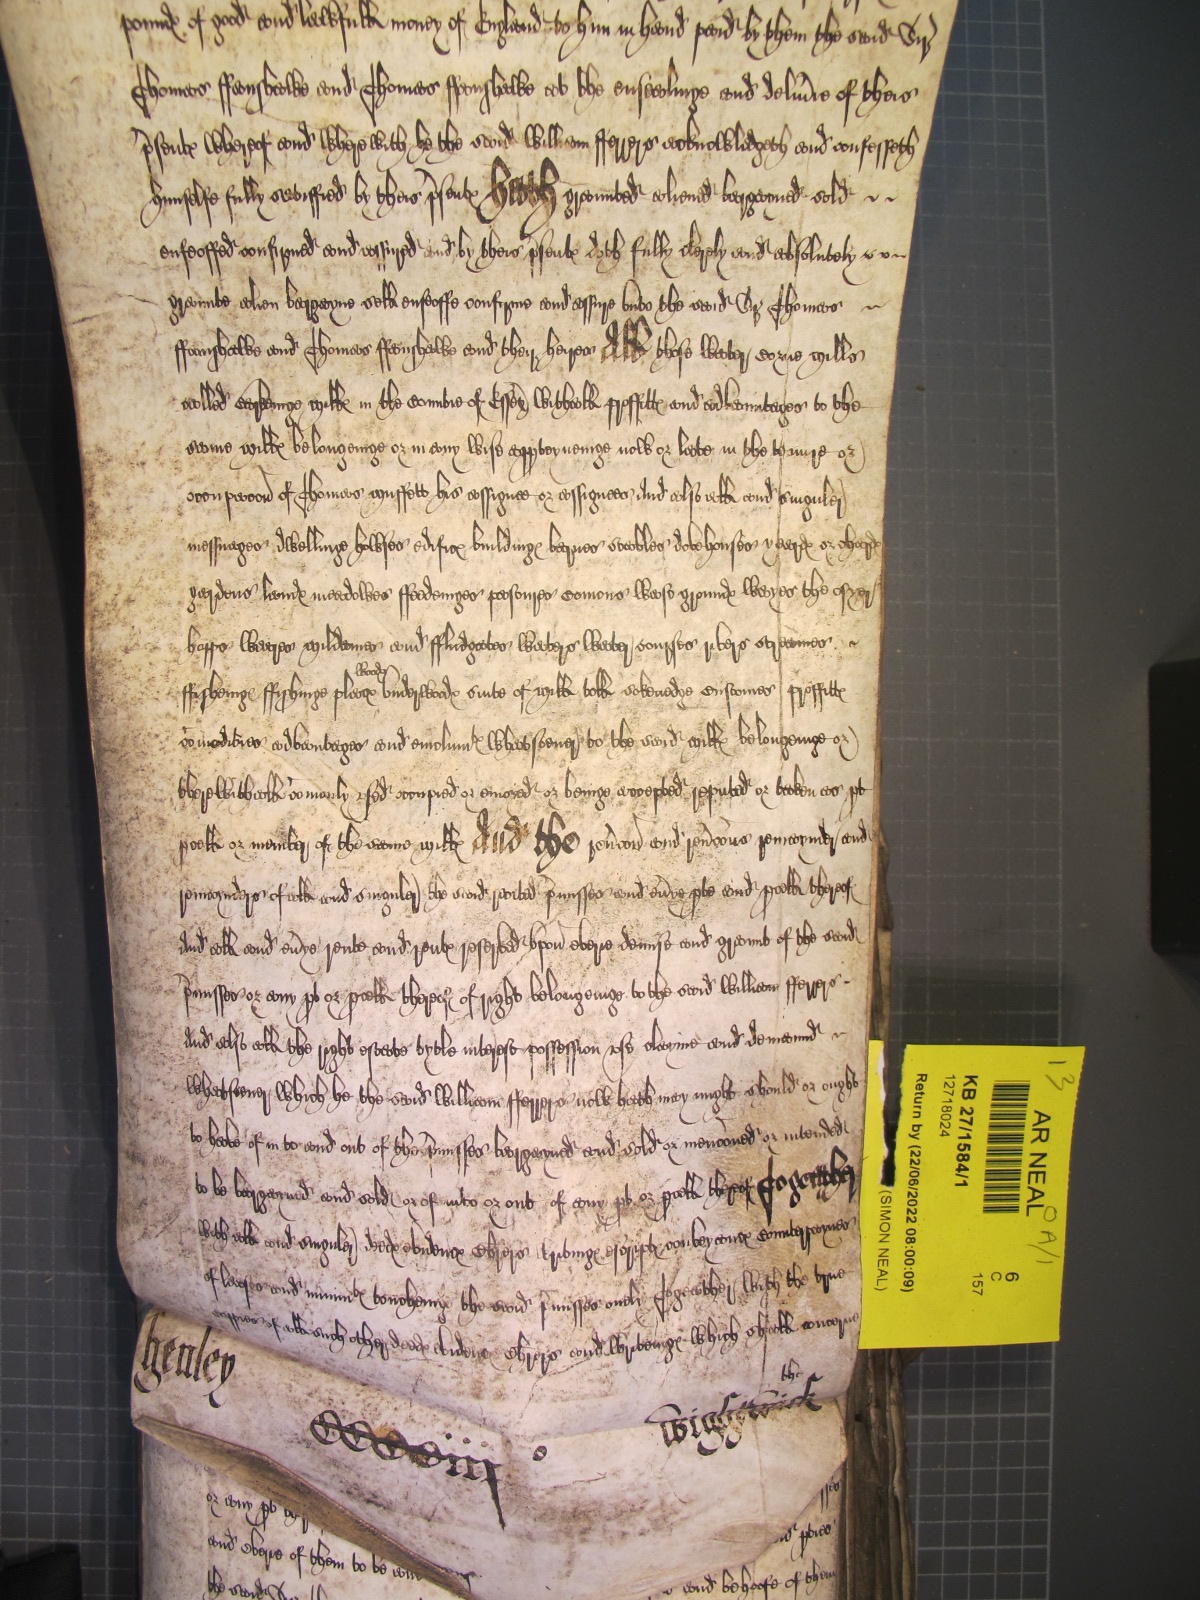 pounde of good and lawfull money of England to him in hand paid by them the said Sir
Thomas ffanshawe and Thomas ffanshawe at the ensealinge and deliu'ie of theis
p'sente whereof and wherewith he the said William fferrers acknowledgeth and confesseth
himselfe fully satisfied by theis p'sente hath graunted aliened bargayned sold
enfeoffed confirmed and assured and by theis p'sente doth fully clerely and absolutely
graunte alien bargayne sell enfeoffe confirme and assure vnto the said Sir Thomas
ffanshawe and Thomas ffanshawe and their heires All those water corne mills
called mille in the countie of Essex withall proffitte and advauntages to the
same mille belongeinge or in any wise apperteyneinge now or late in the tenure or
occupacon of Thomas muffett his assignee or assignees And also all and singuler
messuages dwellinge howses edifice buildinge barnes stables dovehouses yarde orcharde
gardens lande meadowes ffeedeinges pastures comons wast grounde wayes the osyer
hopps weares mildames and ffludgates waters water courses rivers streames
ffisheinge ffishinge place woode vnderwoode suite of mill toll sokenadge customes proffitte
comodities advauntages and emolumte whatsoeuer to the said mille belongeinge or
therewithall comonly vsed occupied or enioyed or beinge accepted reputed or taken as pt
pcell or member of the same mille And the reu'con and reu'cons remaynder and
remaynders of all and singuler the said recited p'misses and eu'ye pte and pcell thereof
And all and eu'ye rente and rente reserved vpon everie demise and graunt of the said
p'misses or any pt or pcell thereof of right belongeinge to the said William fferrers
And also all the right estate tytle interest possession vse clayme and demaund
whatsoeuer which he the said William fferrers now hath may might should or ought
to have of in to and out of the p'misses bargayned and sold or menconed or intended
to be bargayned and sold or of into or out of any pt or pcell thereof Togeather
with all and singuler deede evidence Chres writinge escripte conveyance counterpaynes
of leases and minimte toucheinge the said p'misses onely Togeather with the true
coppies of all such other deede evidence Chres and writeinge which shall concerne
the
henley
wiggwick
CCCCiiij o
or any pt
and everie of them to be
the said
and behoofe of them
13
AR NEAL
OA/1
6
C
157
KB 27/1584/1
12718024
Return by (22/06/2022 08:00:09)
(SIMON NEAL)